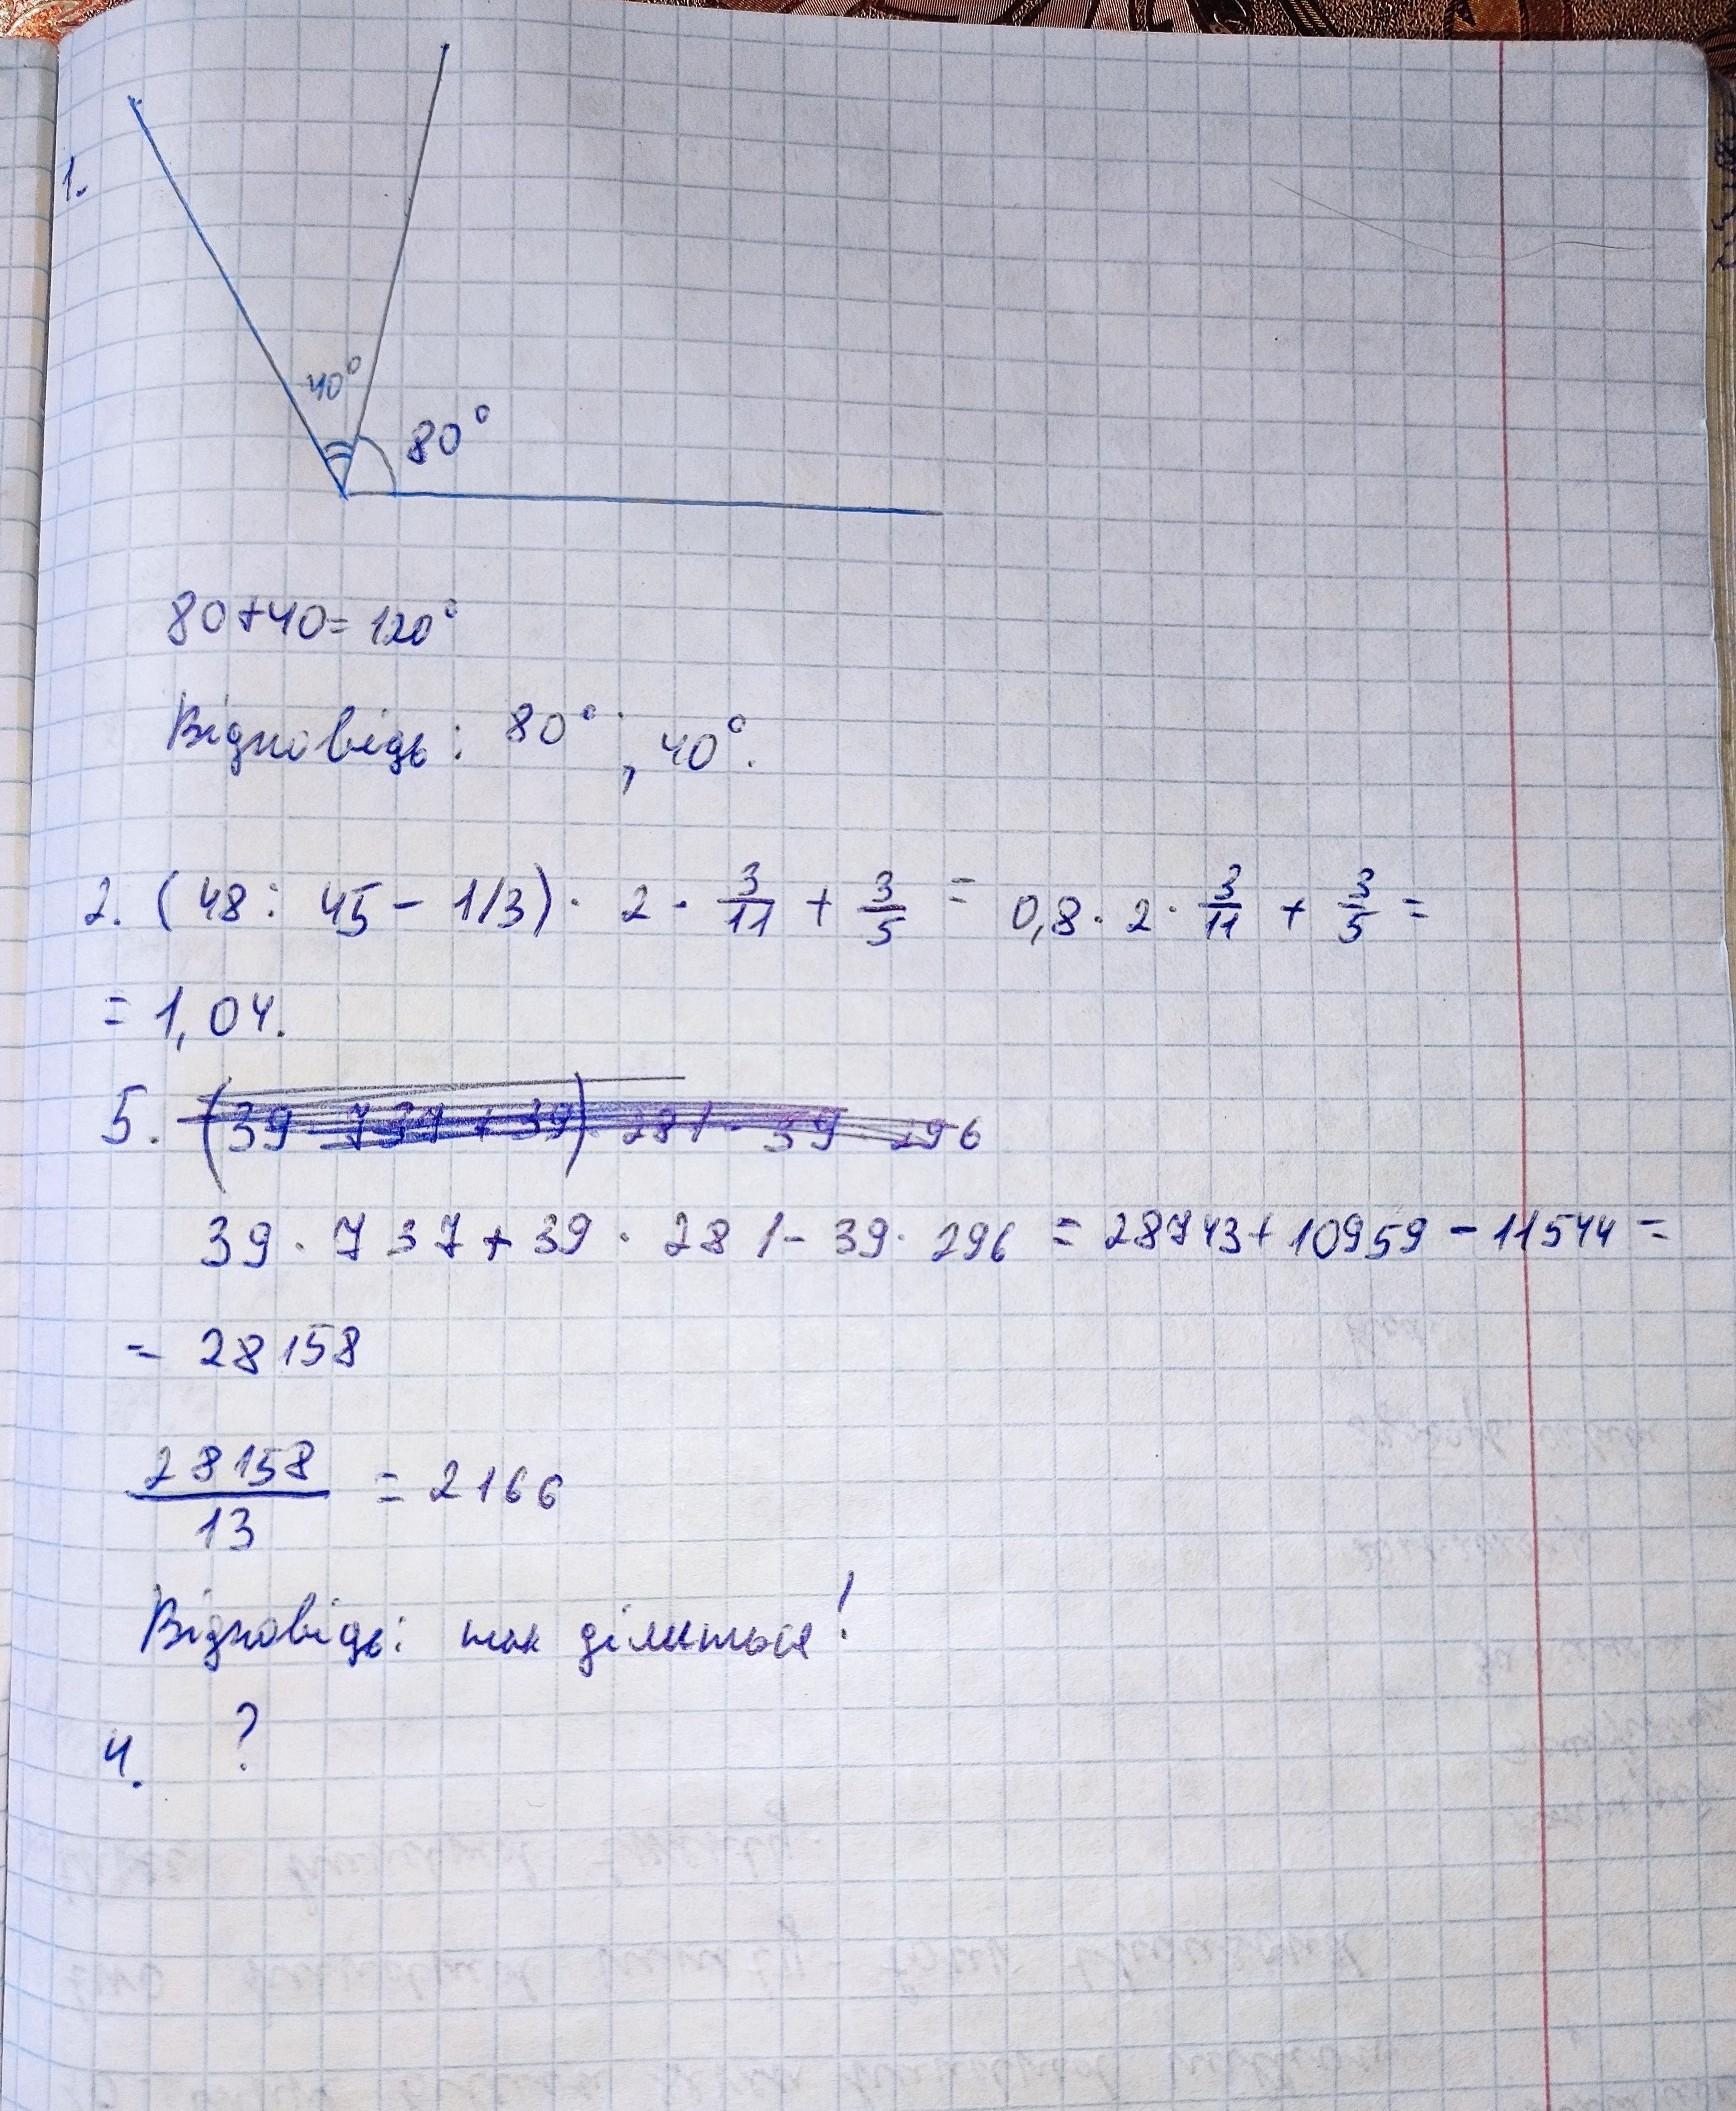 1.
40°
80°
80+40=120°
Відповідь: 80°; 40°.
2. (48 : 45 - 1/3) · 2 · 3/11 + 3/5 = 0,8 · 2 · 3/11 + 3/5 =
= 1,04.
5. (39 · 737 + 39) 281 - 39 · 296
39 · 737 + 39 · 281 - 39 · 296 = 28743 + 10959 - 11544 =
= 28158
28158/13 = 2166
Відповідь: так ділиться!
4. ?